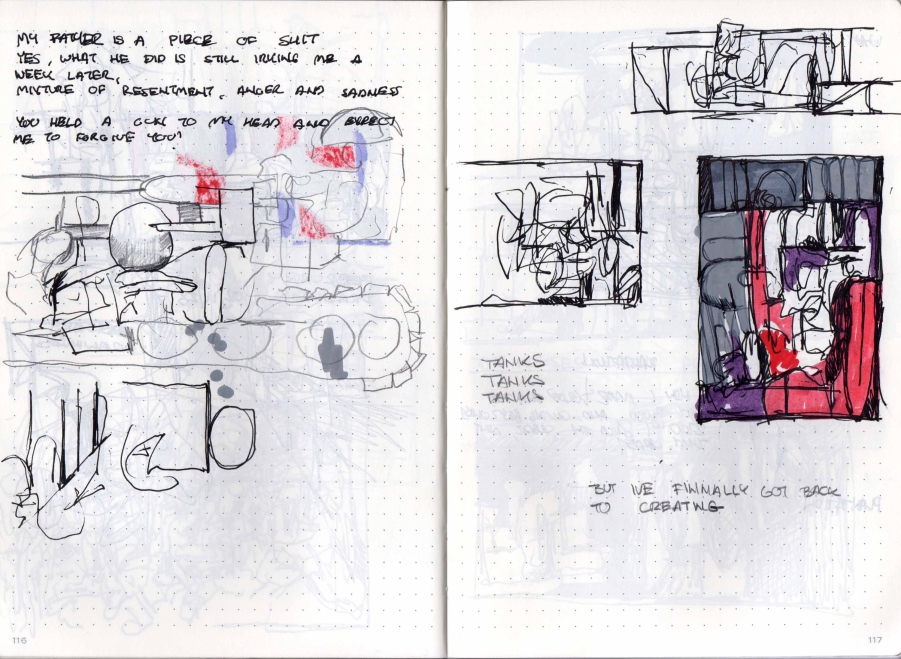 MY FATHER IS A PIECE OF SHIT
YES, WHAT HE DID IS STILL IRKING ME A
WEEK LATER,
MIXTURE OF RESENTMENT, ANGER AND SADNESS
YOU HELD A GUN TO MY HEAD AND EXPECT
ME TO FORGIVE YOU?
TANKS
TANKS
TANKS
BUT IVE FINNALLY GOT BACK
TO CREATING
116
117